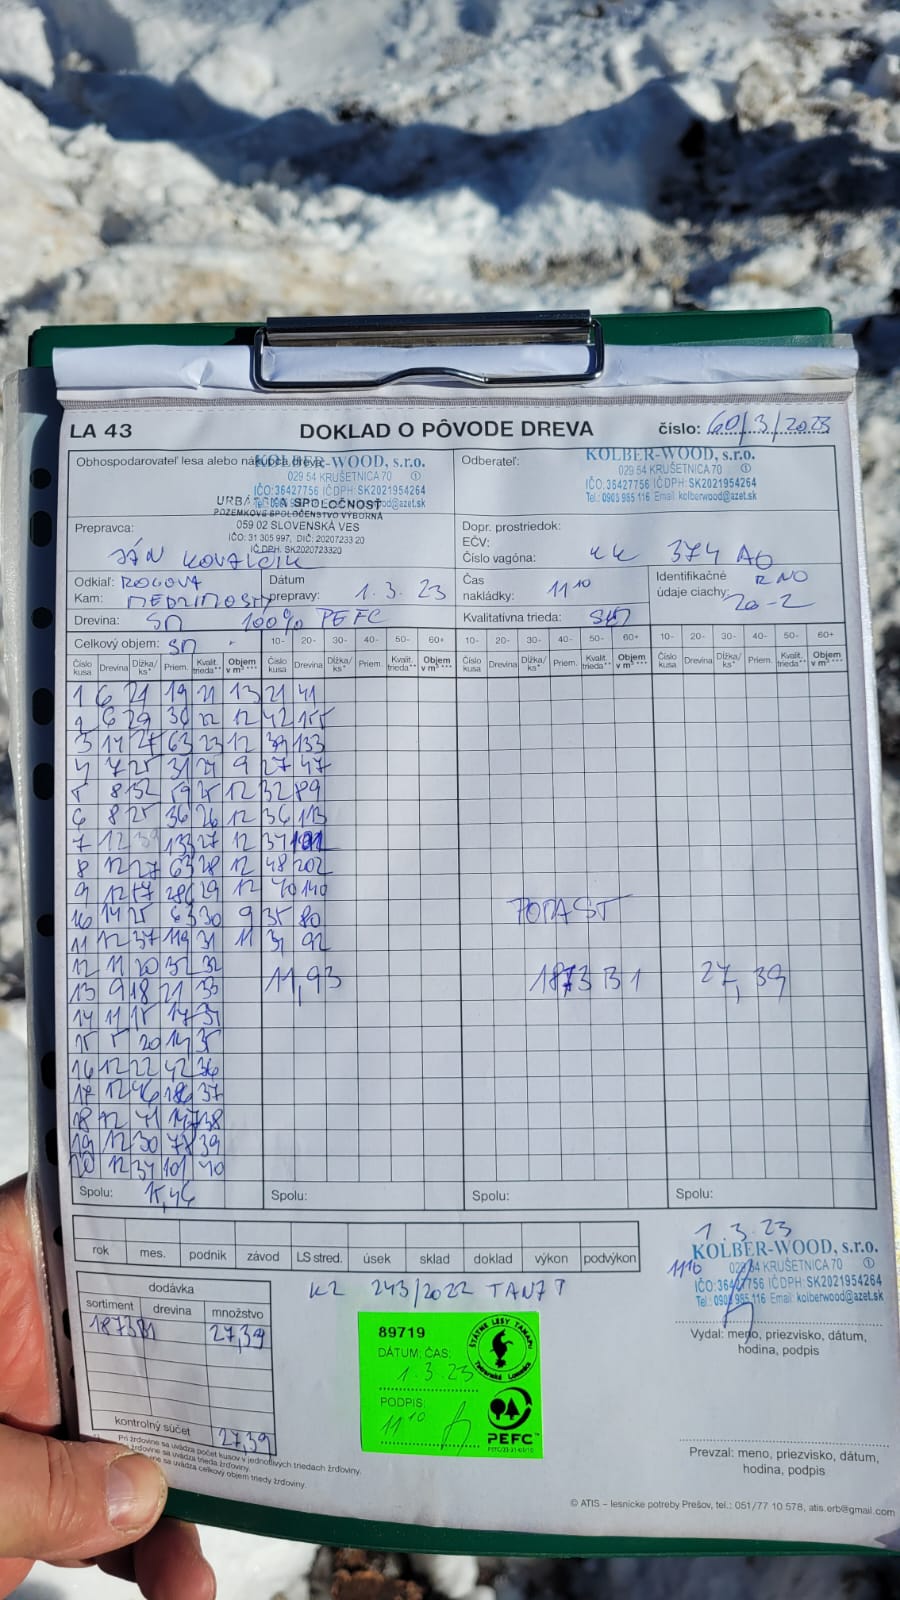 LA 43 DOKLAD O PÔVODE DREVA číslo: 60/3/2023
Obhospodarovateľ lesa alebo
KOLBER-WOOD, s.r.o.
029 54 KRUŠETNICA 70
IČO:36427756 IČ DPH:SK2021954264
SPOLOČNOSŤ
POZEMKOVÉ SPOLOČENSTVO VÝBORNÁ
059 02 SLOVENSKÁ VES
IČO: 31 305 997, DIČ: 2020723320
IČ DPH: SK2020723320
Odberateľ:
KOLBER-WOOD, s.r.o.
029 54 KRUŠETNICA 70
IČO:36427756 IČDPH:SK2021954264
Tel.: 0905 985 116 Email: kolberwood@azet.sk
Prepravca:
JÁN KOVALČIK
Dopr. prostriedok:
EČV:
Číslo vagóna: KK 374 AO
Odkiaľ:
Kam:
Dátum
prepravy: 1.3.23
Čas
nakládky: 11 10
Identifikačné RNO
údaje ciachy: 20-2
Drevina: SM 100% PEFC
Kvalitatívna trieda:
Celkový objem: SM
10- 20- 30- 40- 50- 60+ 10- 20- 30- 40- 50- 60+ 10- 20- 30- 40- 50- 60+
Číslo kusa Drevina Dĺžka/ ks* Priem. Kvalit. trieda** Objem v m³*** Číslo kusa Drevina Dĺžka/ ks* Priem. Kvalit. trieda** Objem v m³*** Číslo kusa Drevina Dĺžka/ ks* Priem. Kvalit. trieda** Objem v m³*** Číslo kusa Drevina Dĺžka/ ks* Priem. Kvalit. trieda** Objem v m³***
1 6 21 19 21 13 21 41
2 6 29 22 12 42 155
3 14 27 63 23 12 39 133
4 7 25 31 9 27 47
5 8 32 25 12 32 89
6 8 25 36 26 12 36 113
7 12 39 133 27 12 37
8 12 27 63 28 12 48 202
9 12 29 12 40 140
10 14 25 63 30 9 35 80
11 12 37 119 31 11 31 92
12 11 20 32
13 9 18 21 33 11,93 1873 B1 27,39
14 11 15
15 5 20 14 35
16 12 22 42 36
17 12 46 186 37
18 12 41 147 38
19 12 30 78 39
20 12 34 101 40
Spolu: 15,46 Spolu: Spolu: Spolu:
rok mes. podnik závod LS stred. úsek sklad doklad výkon podvýkon
1.3.23
11 10
KOLBER-WOOD, s.r.o.
029 54 KRUŠETNICA 70
IČO:36427756 IČDPH:SK2021954264
Tel.: 0905 985 116 Email: kolberwood@azet.sk
Vydal: meno, priezvisko, dátum,
hodina, podpis
KZ 243/2022
dodávka
sortiment drevina množstvo
1873B1 27,39
kontrolný súčet 27,39
89719
DÁTUM: ČAS:
1.3.23
PODPIS:
11 10
ŠTÁTNE LESY TANAPU
Tatranská Lomnica
PEFC
Pri žrďovine sa uvádza počet kusov v jednotlivých triedach žrďoviny.
sa uvádza trieda žrďoviny.
sa uvádza celkový objem triedy žrďoviny.
Prevzal: meno, priezvisko, dátum,
hodina, podpis
© ATIS – lesnícke potreby Prešov, tel.: 051/77 10 578, atis.erb@gmail.com